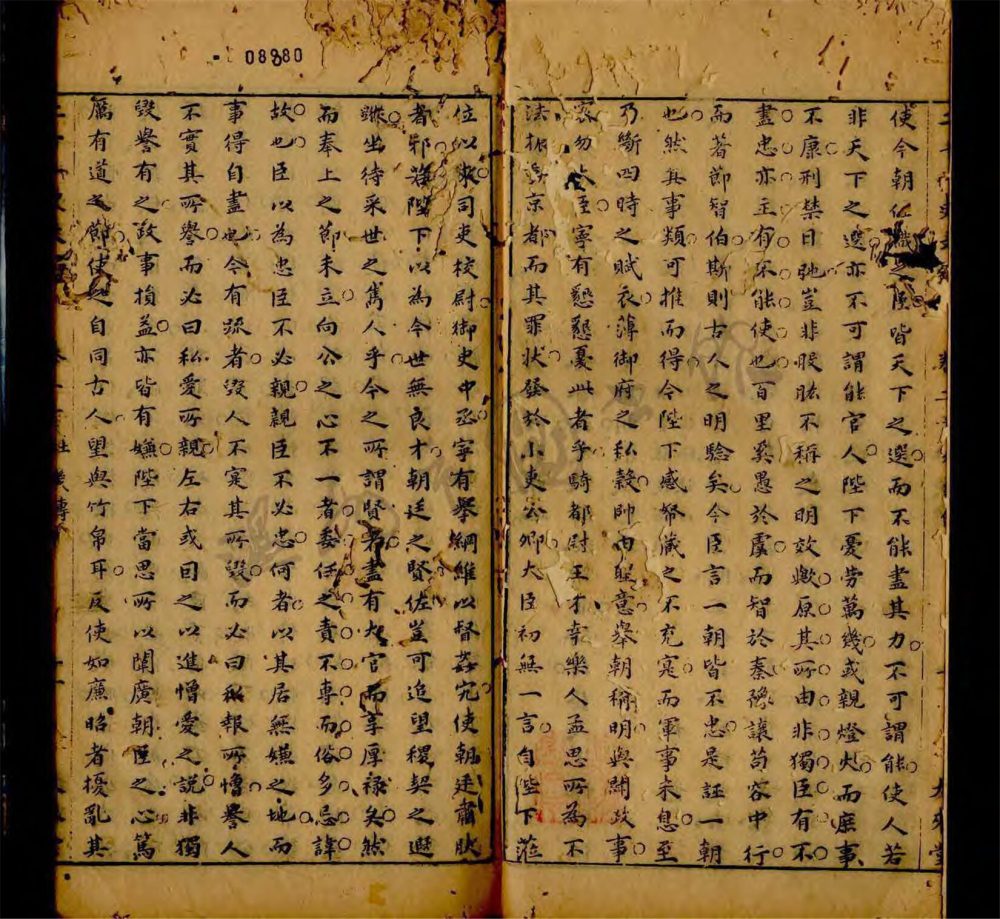 08880
使今朝任職之臣皆天下之選而不能盡其力不可謂能使人若
非天下之選亦不可謂能官人陛下憂勞萬幾或親燈火而庶事
不康刑禁日弛豈非股肱不稱之明效歟原其所由非獨臣有不
盡忠亦主有不能使也百里奚愚於虞而智於秦豫讓苟容中行
而著節智伯斯則古人之明驗矣今臣言一朝皆不忠是誣一朝
也然其事類可推而得今陛下感帑藏之不充寔而軍事未息至
乃斷四時之賦衣薄御府之私穀帥由聖意舉朝稱明與聞政事
寧有懇懇憂此者乎騎都尉王才幸樂人孟思所為不
法振動京都而其罪狀發於小吏公卿大臣初無一言自陛下蒞
位以來司吏校尉御史中丞寧有舉綱維以督姦宄使朝廷肅肰
者邪若陛下以為今世無良才朝廷之賢佐豈可追望稷契之遐
蹤坐待來世之雋人乎今之所謂賢者盡有大官而享厚祿矣然
而奉上之節未立向公之心不一者委任之責不專而俗多忌諱
故也臣以為忠臣不必親親臣不必忠何者以其居無嫌之地而
事得自盡也今有疏者毀人不寔其所毀而必曰私報所憎譽人
不實其所譽而必曰私愛所親左右或因之以進憎愛之說非獨
毀譽有之政事損益亦皆有嫌陛下當思所以闡廣朝臣之心篤
厲有道之節使之自同古人望與竹帛耳反使如廉昭者擾亂其